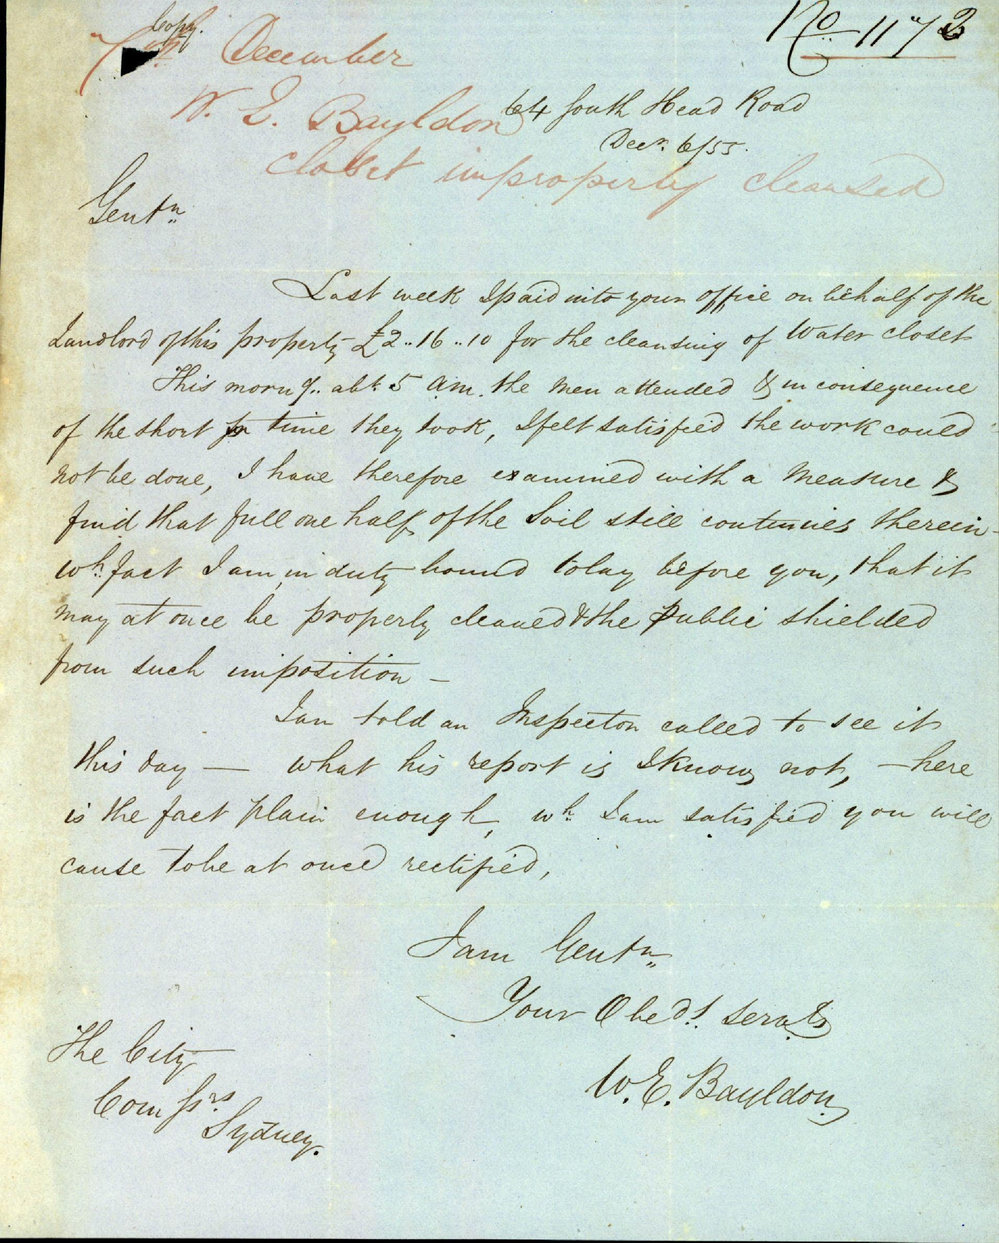 Copy.
No 1172
7th December
W. E. Bayldon
64 South Head Road
Decr. 6/55.
closet improperly cleansed
Gentn
Last week I paid into your office on behalf of the
Landlord of this property £2..16..10 for the cleansing of Water closet
This morng.. abt. 5 a.m. the men attended & in consequence
of the short time they took, I felt satisfied the work could
not be done, I have therefore examined with a measure &
find that full one half of the Soil still continues therein -
wh. fact I am in duty bound to lay before you, that it
may at once be properly cleaned & the Public shielded
from such imposition -
I am told an Inspector called to see it
this day — what his report is I know not, - here
is the fact plain enough, wh. I am satisfied you will
cause to be at once rectified,
I am Gentn
Your Obedt. Servt.
W. E. Bayldon
The City
Comssrs
Sydney.